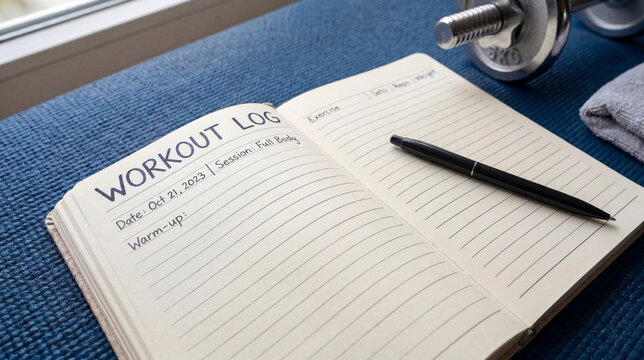 WORKOUT LOG
Date: Oct 21, 2023 | Session: Full Body
Warm-up:
Exercise | Sets | Reps | Weight
5KG